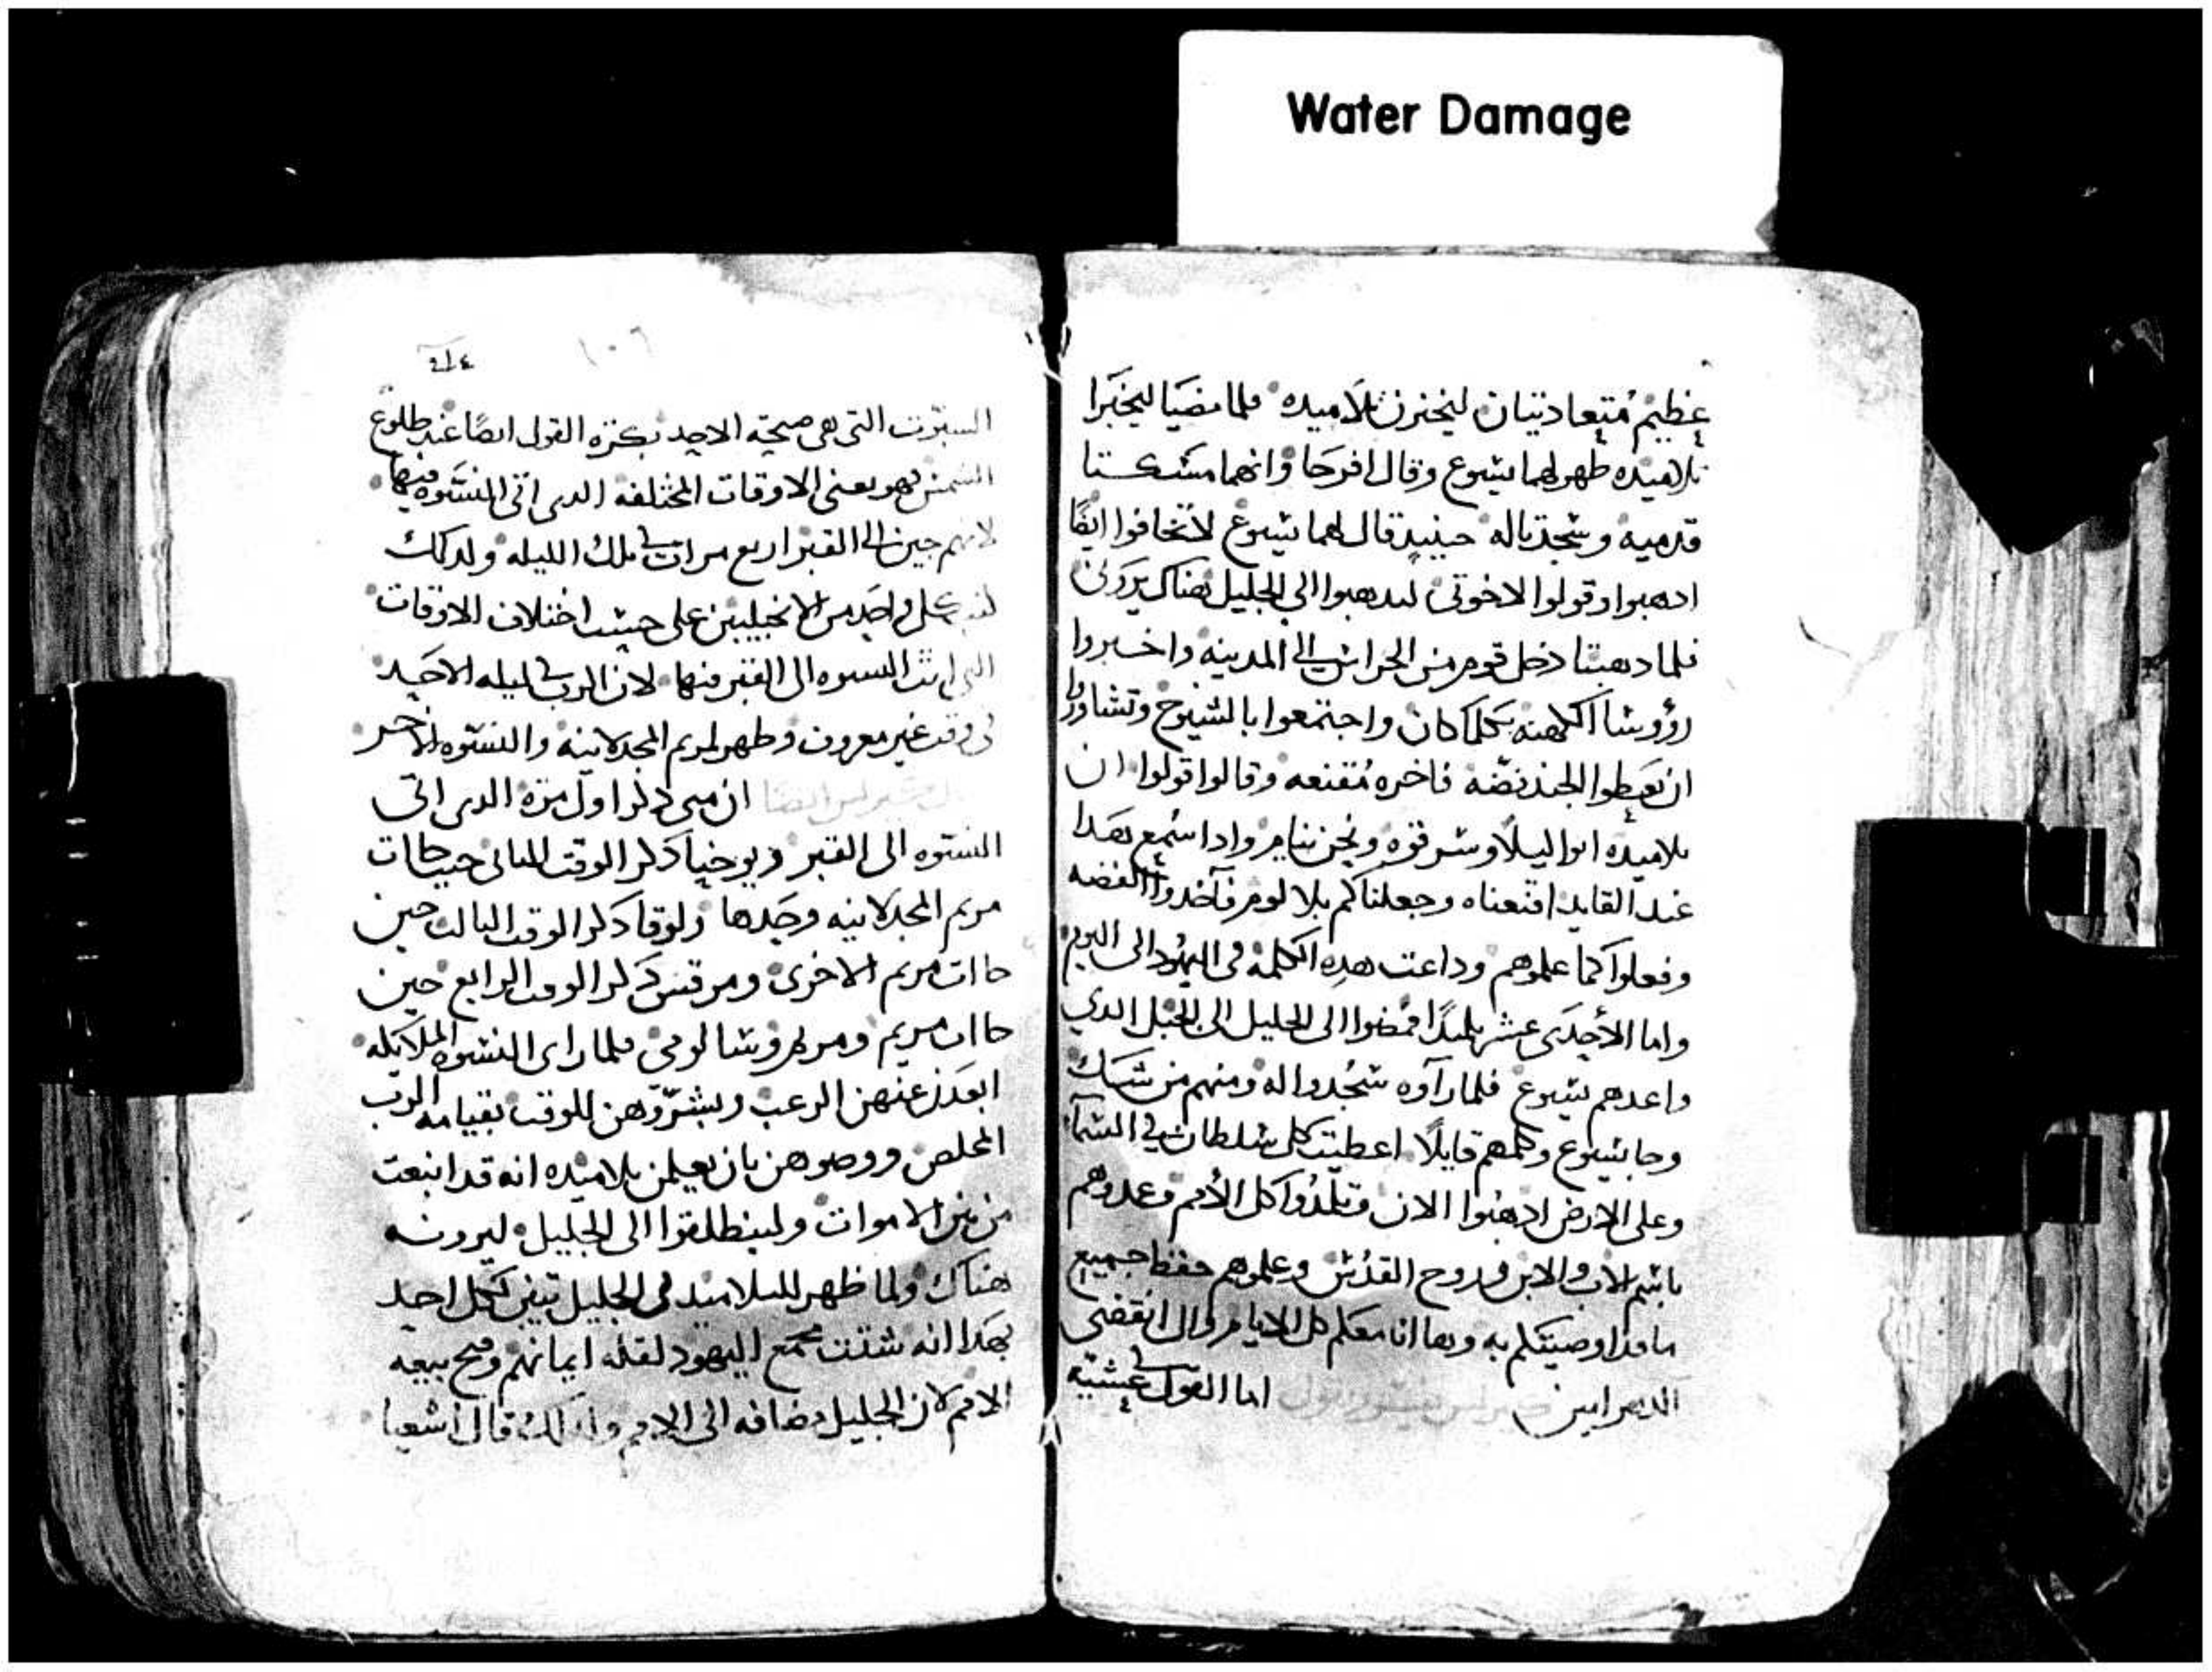 Water Damage
عظيم متعادتيان ليخبرن تلاميده فلما مضيا ليخبرا
تلاميده ظهر لهما يسوع وقال افرحا وانهما مسكتا
قدميه وسجدتا له حينيد قال لهما يسوع لا تخافوا ايضا
ادهبوا وقولوا لاخوتي ليدهبوا الى الجليل هناك يروني
فلما دهبتا دخل قوم من الحراس الى المدينه واخبروا
رؤوسا الكهنه بكلما كان واجتمعوا بالشيوخ وتشاوروا
ان يعطوا الجند فضه فاخره مقنعه وقالوا قولوا ان
تلاميده اتوا ليلا وسرقوه ونحن نيام وادا سمع هدا
عند القايد اقنعناه وجعلناكم بلا لوم فآخدوا الفضه
وفعلوا كما علموهم وداعت هده الكلمه في اليهود الى اليوم
واما الأحدى عشر تلميدا فمضوا الى الجليل الى الجبل الدي
واعدهم يسوع فلما رآوه سجدوا له ومنهم من شك
وجا يسوع وكلمهم قايلا اعطيت كل سلطان في السما
وعلى الارض ادهبوا الان وتلمدوا كل الأمم وعمدوهم
باسم الاب والابن وروح القدس وعلموهم حفظ جميع
ما قد اوصيتكم به وها انا معكم كل الايام والى انقضى
الدهر امين اما القول عشية
٢١٤
١٠٦
السبوت التي هي صبحة الاحد بكره القول ايضا عند طلوع
الشمس فهو يعني الاوقات المختلفه الدى اتى النسوه فيها
لانهم جين الى القبر اربع مرات في تلك الليله ولدلك
كل واحد من الانجيليين على حسب اختلاف الاوقات
التي اتت النسوه الى القبر فيها لان الرب في ليله الاحد
في وقت غير معروف وظهر لمريم المجدلانيه والنسوه الاخر
ان متى دكر اول مره الدى اتى
النسوه الى القبر ويوحنا دكر الوقت التاني حيت جات
مريم المجدلانيه وحدها ولوقا دكر الوقت التالت حين
جاات مريم الاخرى ومرقس دكر الوقت الرابع حين
جاات مريم ومريم وسالومي فلما راى النسوه الملايكه
ابعدن عنهن الرعب وبشروهن للوقت بقيامه الرب
المخلص ووصوهن بان يعلمن تلاميده انه قد انبعت
من بين الاموات ولينطلقوا الى الجليل ليرونه
هناك ولما ظهر للتلاميد في الجليل تبين لكل احد
بهدا انه شتت مجمع اليهود لقله ايمانهم وفتح بيعه
الامم لان الجليل مضافه الى الامم ولدلك قال اشعيا